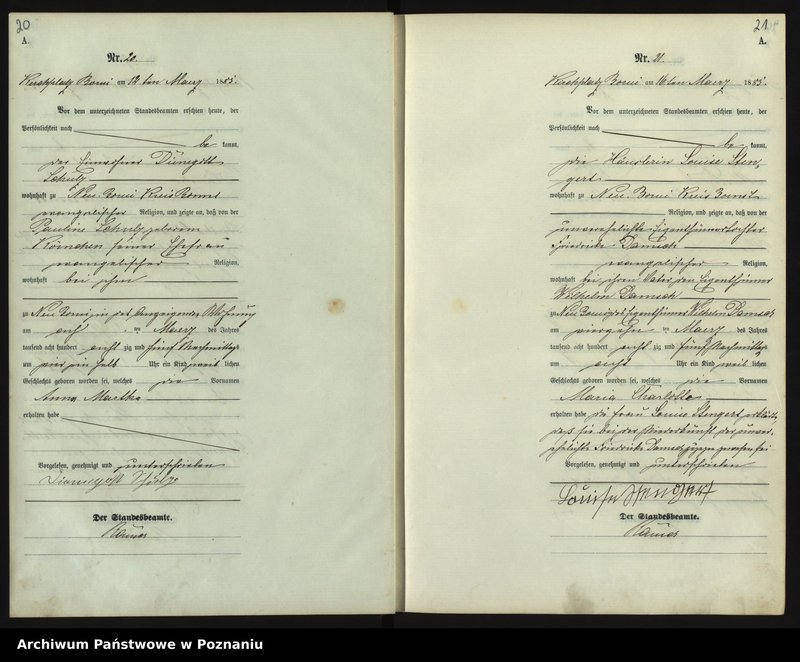 20
A.
Nr. 20.
Kirchplatz Borui am 12 ten Maerz 1885.
Vor dem unterzeichneten Standesbeamten erschien heute, der
Persönlichkeit nach
be kannt,
der Einwohner Dünegott
Schulz
wohnhaft zu Neu Borui Kreis Bomst
evangelischer Religion, und zeigte an, daß von der
Pauline Schulz geborene
Körnchen seiner Ehefrau
evangelischer Religion,
wohnhaft bei ihm
zu Neu Borui in des Anzeigenden Wohnung
am acht ten Maerz des Jahres
tausend acht hundert acht zig und fünf Nachmittags
um vier ein halb Uhr ein Kind weib lichen
Geschlechts geboren worden sei, welches die Vornamen
Anna Martha
erhalten habe
Vorgelesen, genehmigt und unterschrieben
Der Standesbeamte.
21
A.
Nr. 21.
Kirchplatz Borui am 16 ten Maerz 1885.
Vor dem unterzeichneten Standesbeamten erschien heute, der
Persönlichkeit nach
be kannt,
die Häuslerin Louise Sten-
gert
wohnhaft zu Neu Borui Kreis Bomst
Religion, und zeigte an, daß von der
unverehelichte Eigenthümertochter
Friedricke Damsch
evangelischer Religion,
wohnhaft bei ihrem Vater dem Eigenthümer
Wilhelm Damsch
zu Neu Borui des Eigenthümer Wilhelm Damsch
am vierzehn ten Maerz des Jahres
tausend acht hundert acht zig und fünf Nachmittags
um acht Uhr ein Kind weib lichen
Geschlechts geboren worden sei, welches die Vornamen
Maria Charlotte
erhalten habe die Frau Louise Stengert erklärt,
daß sie bei der Niederkunft der unver-
ehelichte Friedricke Damsch zugegen gewesen sei
Vorgelesen, genehmigt und unterschrieben
Louise Stengert
Der Standesbeamte.
Archiwum Państwowe w Poznaniu